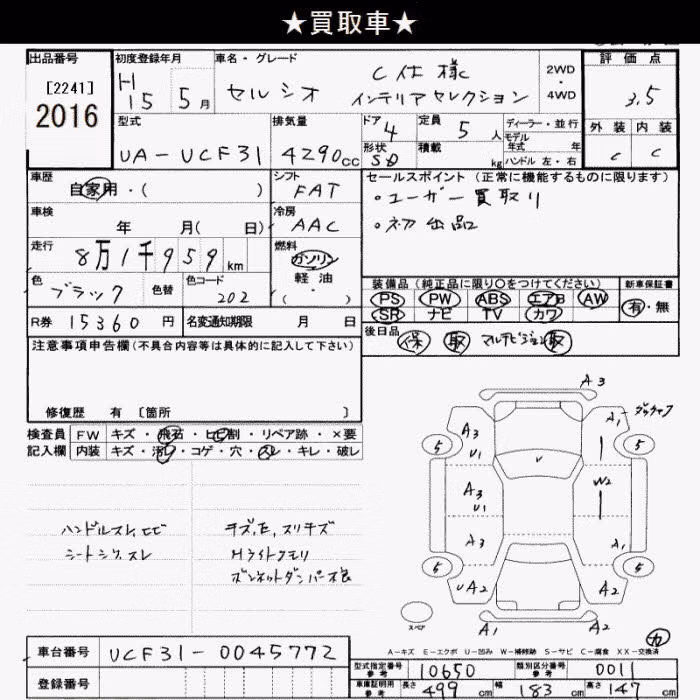 ★買取車★
出品番号
[2241]
2016
初度登録年月
H15 5月
車名・グレード
セルシオ
C仕様
インテリアセレクション
2WD
・
4WD
評価点
3.5
外装 内装
C C
型式
UA-UCF31
排気量
4290cc
ドア 4
形状 SD
定員 5人
積載 kg
ディーラー・並行
モデル
年式 年
ハンドル 左・右
車歴
自家用・( )
シフト
FAT
セールスポイント(正常に機能するものに限ります)
・ユーザー買取り
・初出品
車検
年 月( 日)
冷房
AAC
走行
8万1千959km
燃料
ガソリン
軽油
( ・ )
色
ブラック
色替
色コード
202
装備品(純正品に限り〇をつけてください)
PS PW ABS エアB AW
SR ナビ TV カワ
新車保証書
有・無
R券 15360円
名変通知期限 月 日
後日品
保 取 マルチビジョン取
注意事項申告欄(不具合内容等は具体的に記入して下さい)
修復歴 有 〔箇所 〕
検査員
記入欄
FW キズ・飛石・ヒビ割・リペア跡・×要
内装 キズ・汚レ・コゲ・穴・スレ・キレ・破レ
ハンドルスレ,ヒビ
シートシワ,スレ
チズ,E,スリキズ
Hライトクモリ
ボンネットダンパー不良
A3
A3
U1
A1
5
5
V
A3
U1
W2
A3
A1
5
5
UA2
A2
スペア
A1
A2
カ
A-キズ E-エクボ U-凹み W-補修跡 S-サビ C-腐食 XX-交換済
車台番号 UCF31-0045772
登録番号
型式指定番号
参考
10650
類別区分番号
参考
0011
車庫証明用
参考
長さ 499cm 幅 183cm 高さ 147cm